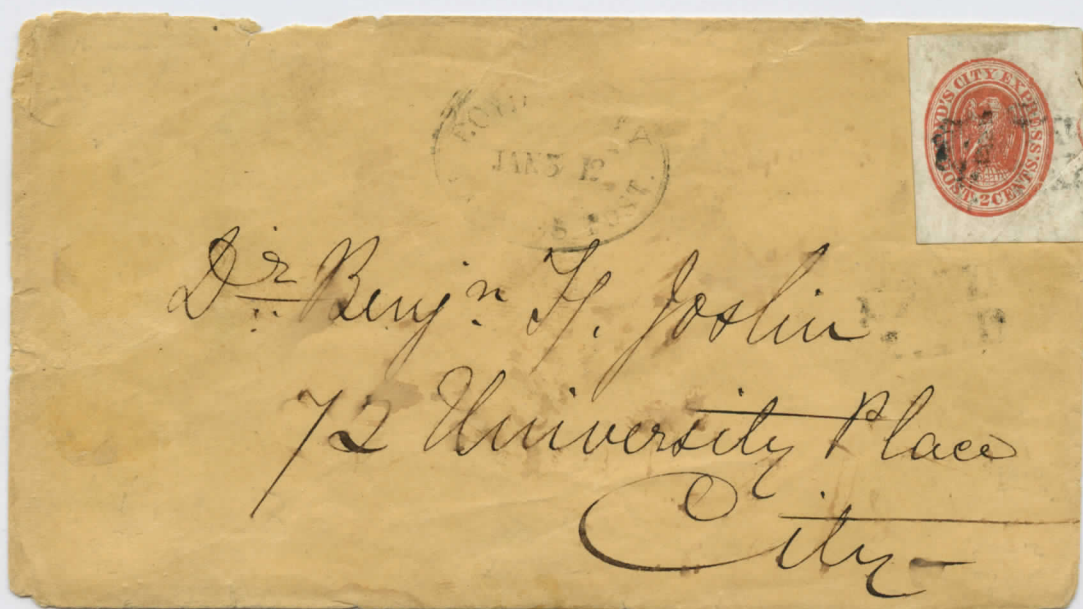 BOYD'S CITY EXPRESS
POST. 2 CENTS.
JAN 5 12
POST.
Dr. Benjn. F. Joslin
72 University Place
City